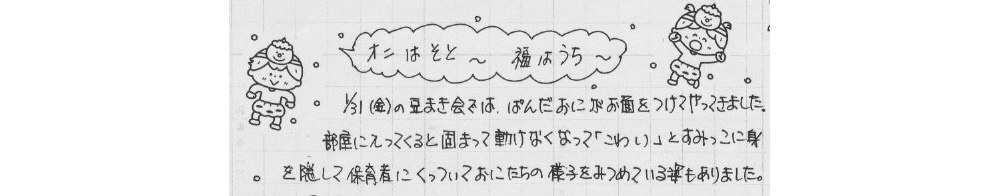 オニはそと～ 福はうち～
1/31(金)の豆まき会では、ぱんだおにがお面をつけてやってきました。
部屋に入ってくると固まって動けなくなって「こわい」とすみっこに身
を隠して保育者にくっついておにたちの様子をみつめている姿もありました。